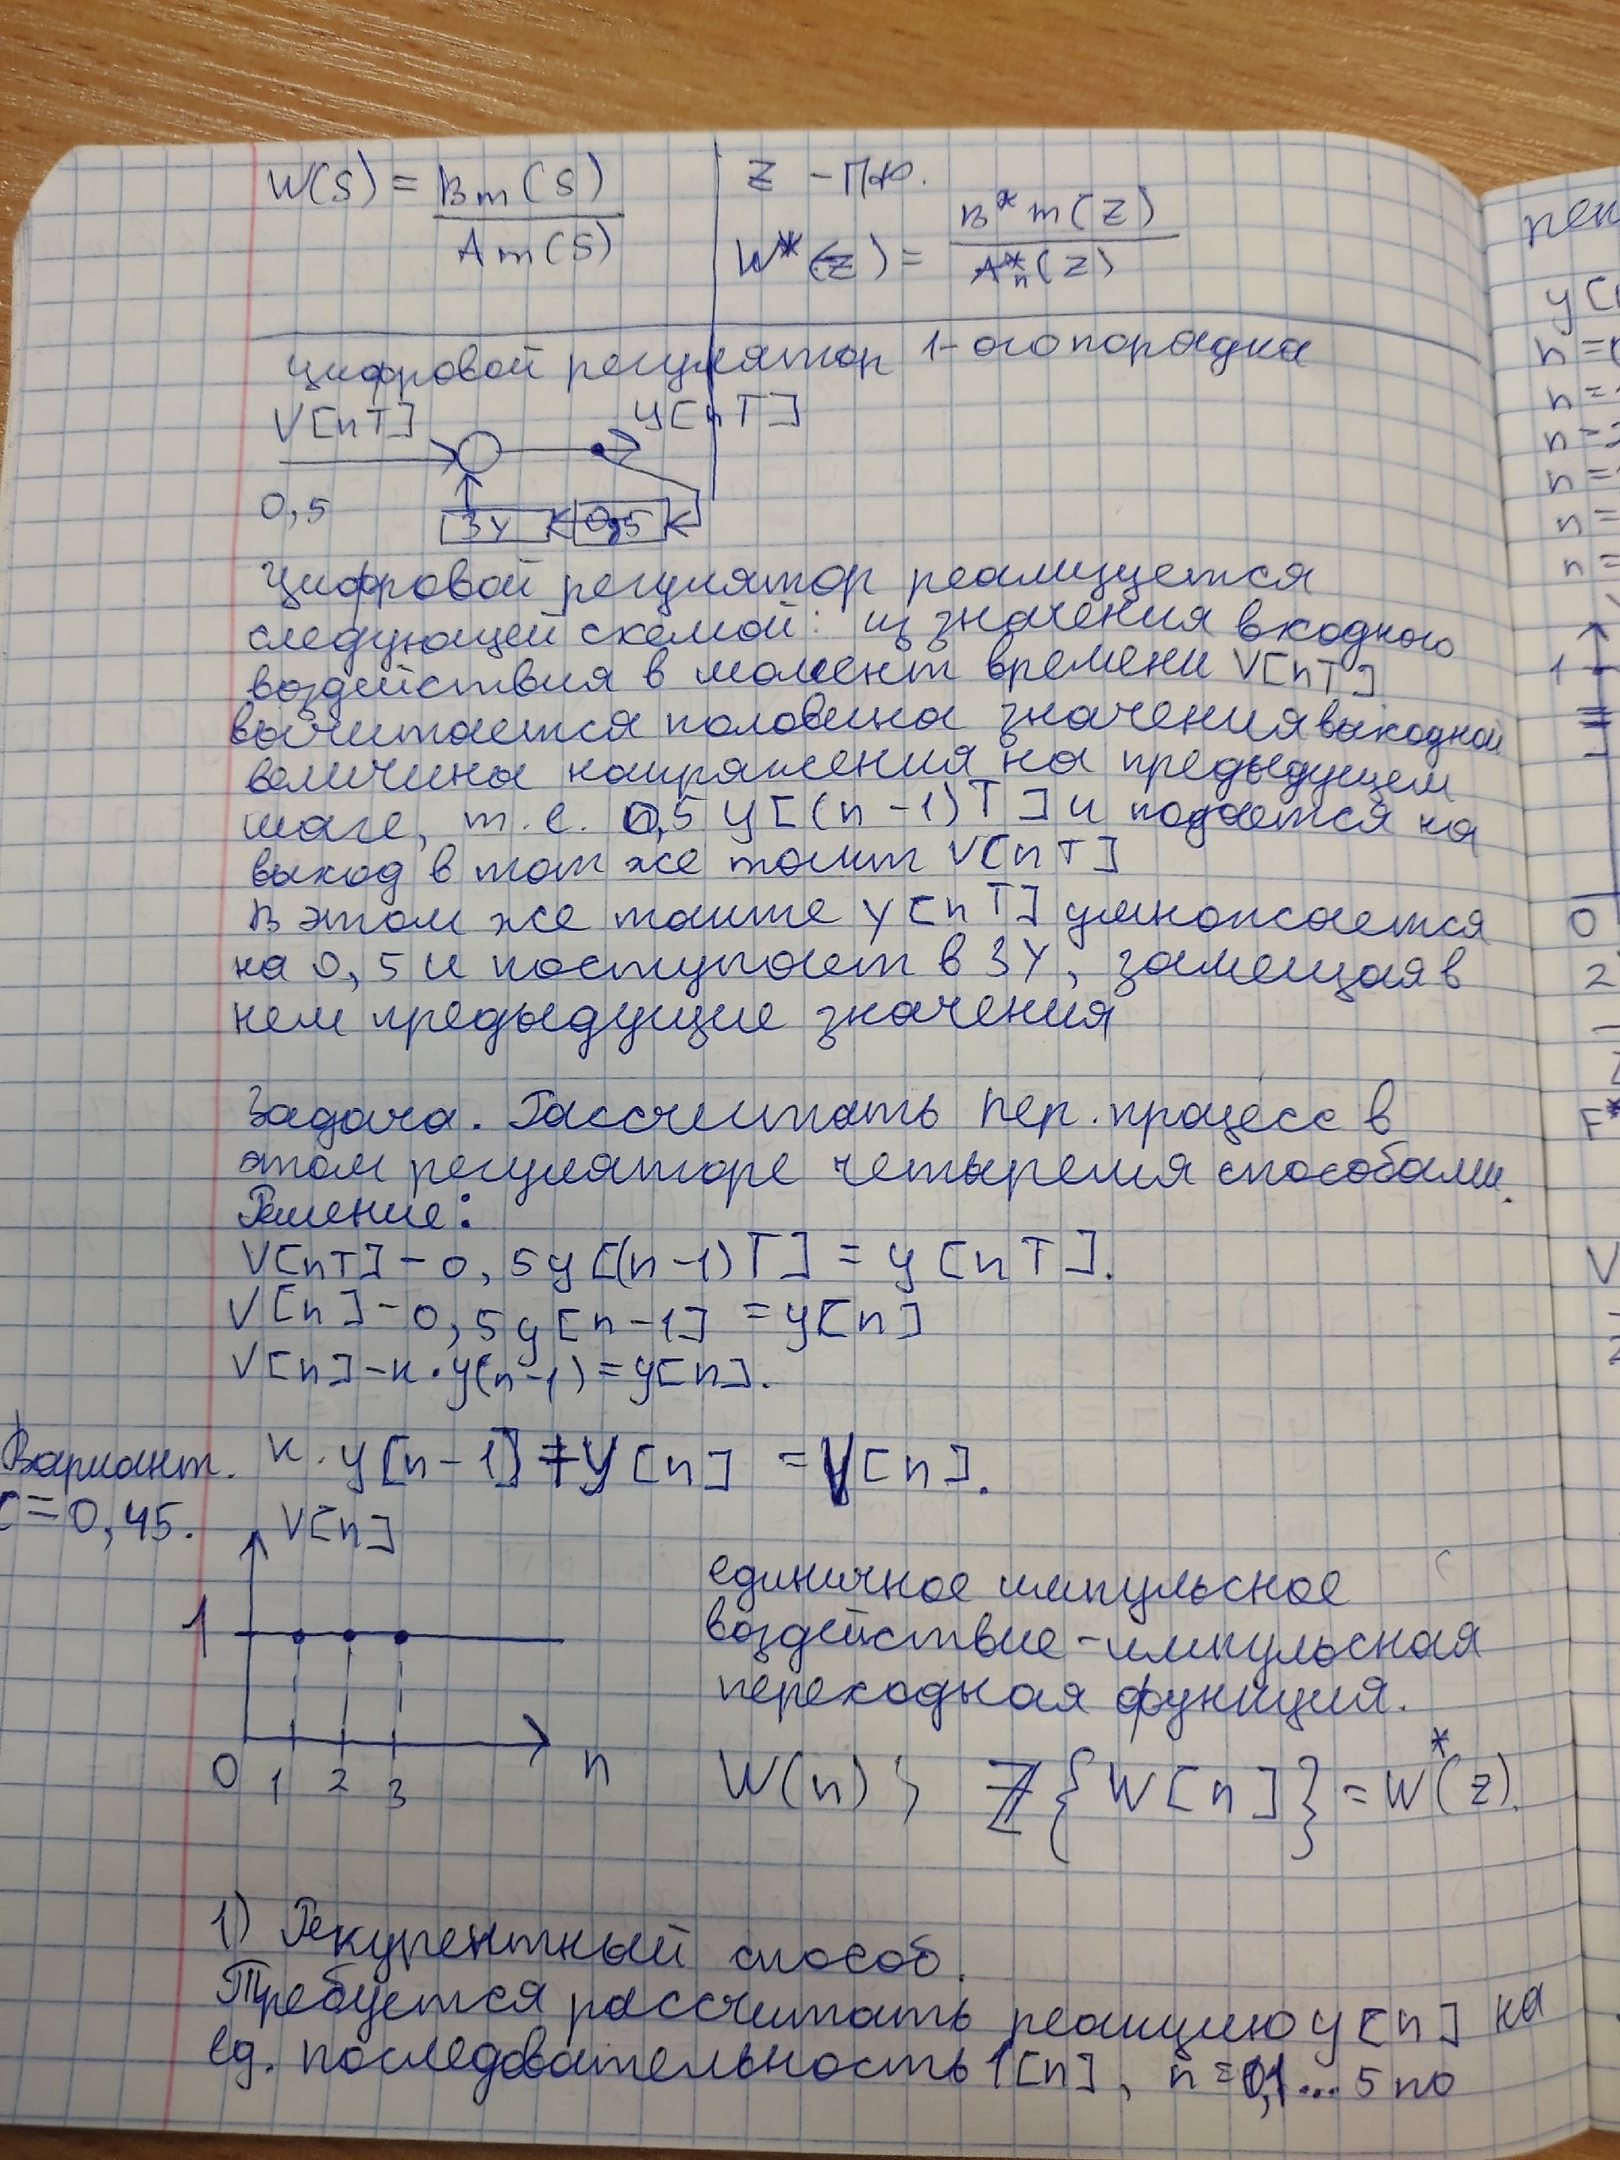 W(s) = Bm(s) / Am(s)
Z - ПФ.
W*(z) = B*m(z) / A*n(z)
Цифровой регулятор 1-ого порядка
V[nT]
y[nT]
0,5
ЗУ
0,5
Цифровой регулятор реализуется
следующей схемой: из значения входного
воздействия в момент времени V[nT]
вычитается половина значения выходной
величины напряжения на предыдущем
шаге, т.е. 0,5 y[(n-1)T] и подается на
выход в тот же такт V[nT]
В этом же такте y[nT] умножается
на 0,5 и поступает в ЗУ, замещая в
нем предыдущие значения
Задача. Рассчитать пер. процесс в
этом регуляторе четыремя способами.
Решение:
V[nT] - 0,5y[(n-1)T] = y[nT].
V[n] - 0,5y[n-1] = y[n]
V[n] - к·y(n-1) = y[n].
Вариант. к·y[n-1] + y[n] = V[n].
=0,45.
V[n]
1
0 1 2 3 n
единичное импульсное
воздействие - импульсная
переходная функция.
W(n) ; Z{W[n]} = W*(z).
1) Рекурентный способ.
Требуется рассчитать реакцию y[n] на
ед. последовательность 1[n], n = 0,1...5 по
y[
n=
n=
n=2
n=
n=
n=
1
0
2
F*
V